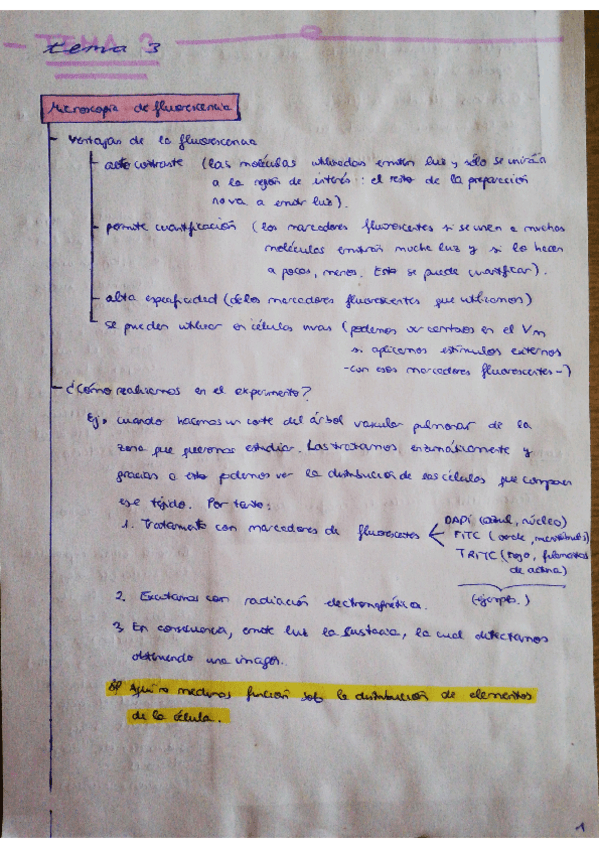 TEMA 3
tema 3
Microscopía de fluorescencia
- Ventajas de la fluorescencia
- alto contraste (las moléculas utilizadas emiten luz y sólo se unirán
a la región de interés: el resto de la preparación
no va a emitir luz).
- permite cuantificación (los marcadores fluorescentes si se unen a muchas
moléculas emitirán mucha luz y si lo hacen
a pocas, menos. Esto se puede cuantificar).
- alta especificidad (de los marcadores fluorescentes que utilizamos)
- se pueden utilizar en células vivas (podemos ver cambios en el Vm
si aplicamos estímulos externos
-con esos marcadores fluorescentes-)
- ¿Cómo realizamos en el experimento?
Ej: cuando hacemos un corte del árbol vascular pulmonar de la
zona que queremos estudiar. Las tratamos enzimáticamente y
gracias a esto podemos ver la distribución de las células que componen
ese tejido. Por tanto:
1. Tratamiento con marcadores de fluorescentes
DAPI (azul, núcleo)
FITC (verde, membranas)
TRITC (rojo, filamentos
de actina)
(ejemplos.)
2. Excitamos con radiación electromagnética.
3. En consecuencia, emite luz la sustancia, la cual detectamos
obteniendo una imagen.
Aquí no medimos función solo la distribución de elementos
de la célula.
1